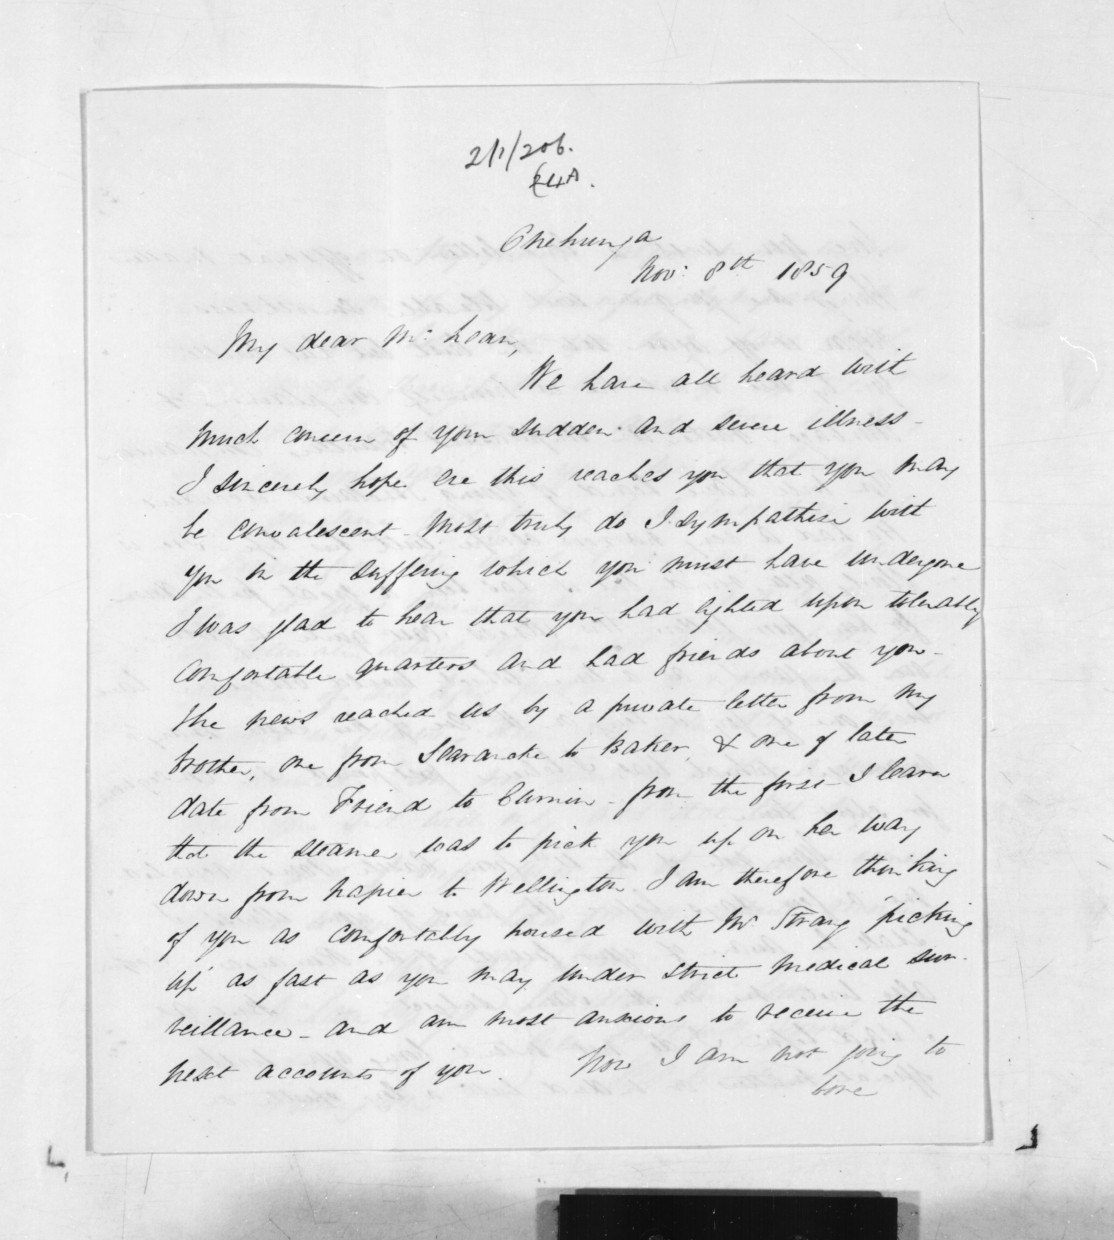 2/1/206.
24A.
Onehunga
Nov: 8th 1859
My dear McLean,
We have all heard with
much concern of your sudden and severe illness -
I sincerely hope ere this reaches you that you may
be convalescent most truly do I sympathise with
you in the suffering which you must have undergone
I was glad to hear that you had lighted upon tolerably
comfortable quarters and had friends about you -
The news reached us by a private letter from my
brother, one from Searancke to Baker, & one of later
date from Friend to - from the first I learn
that the steamer was to pick you up on her way
down from Napier to Wellington I am therefore thinking
of you as comfortably housed with Mr Strang 'picking
up' as fast as you may under strict medical sur-
veillance - and am most anxious to receive the
next accounts of you. Now I am not going to
bore